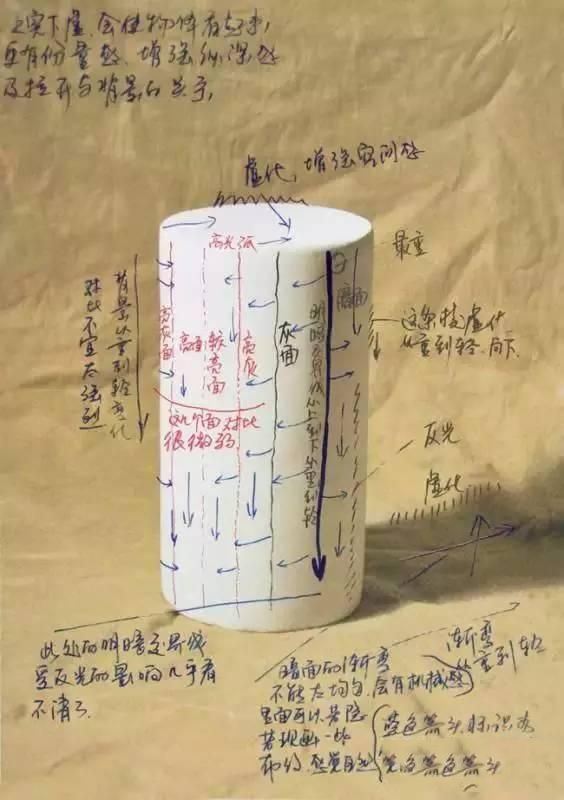 上实下虚.会使物体有起来,
更有份量感.增强纵深感
及拉开与背景的关系,
虚化,增强空间感
高光弧
最重
背景从重到轻变化
对比不宜太强烈
亮灰面
高面
较亮面
亮灰
灰面
明暗交界线从上到下从重到轻
暗面
这条线虚化
从重到轻.向下
这几个面对比
很微弱.
反光
虚化
此处的明暗交界线
受反光的影响几乎看
不清了.
渐变
从重到轻
暗面的渐变
不能太均匀.会有机械感
里面可以若隐
若现画一些
布纹.感觉自然
蓝色箭头.标识为
笔色箭头